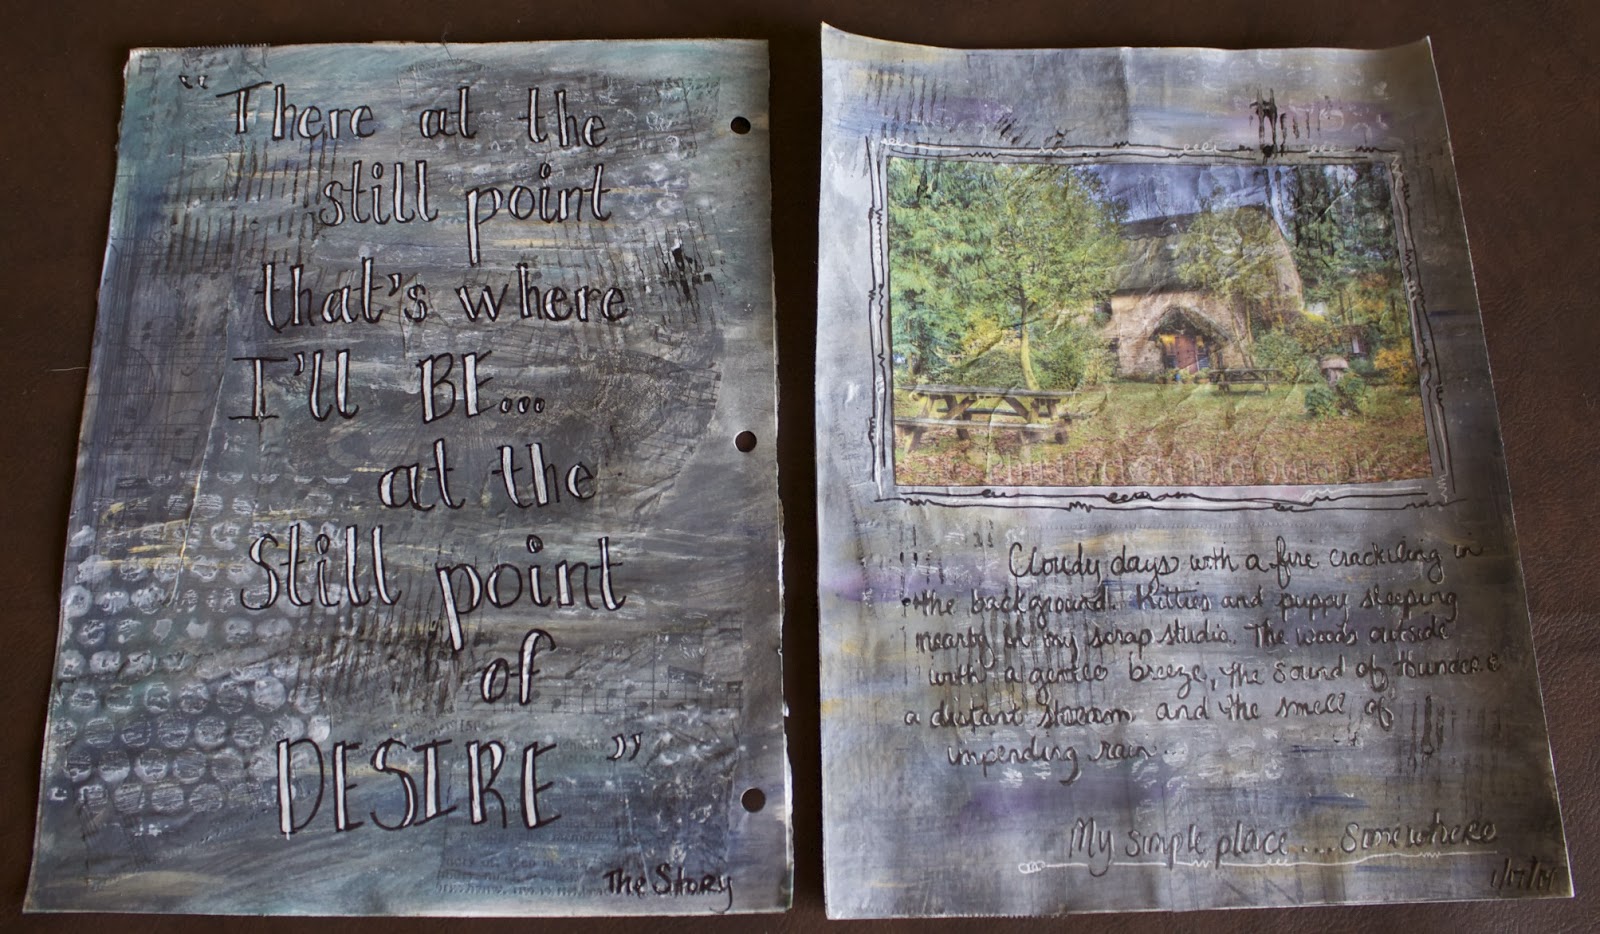 "There at the
still point
that's where
I'll BE...
at the
still point
of
DESIRE"
The Story
Photography
Cloudy days with a fire crackling in
the background. Kitties and puppy sleeping
nearby in my scrap studio. The woods outside
with a gentle breeze, the sound of thunder &
a distant stream and the smell of
impending rain...
My simple place.... Somewhere
1/17/14